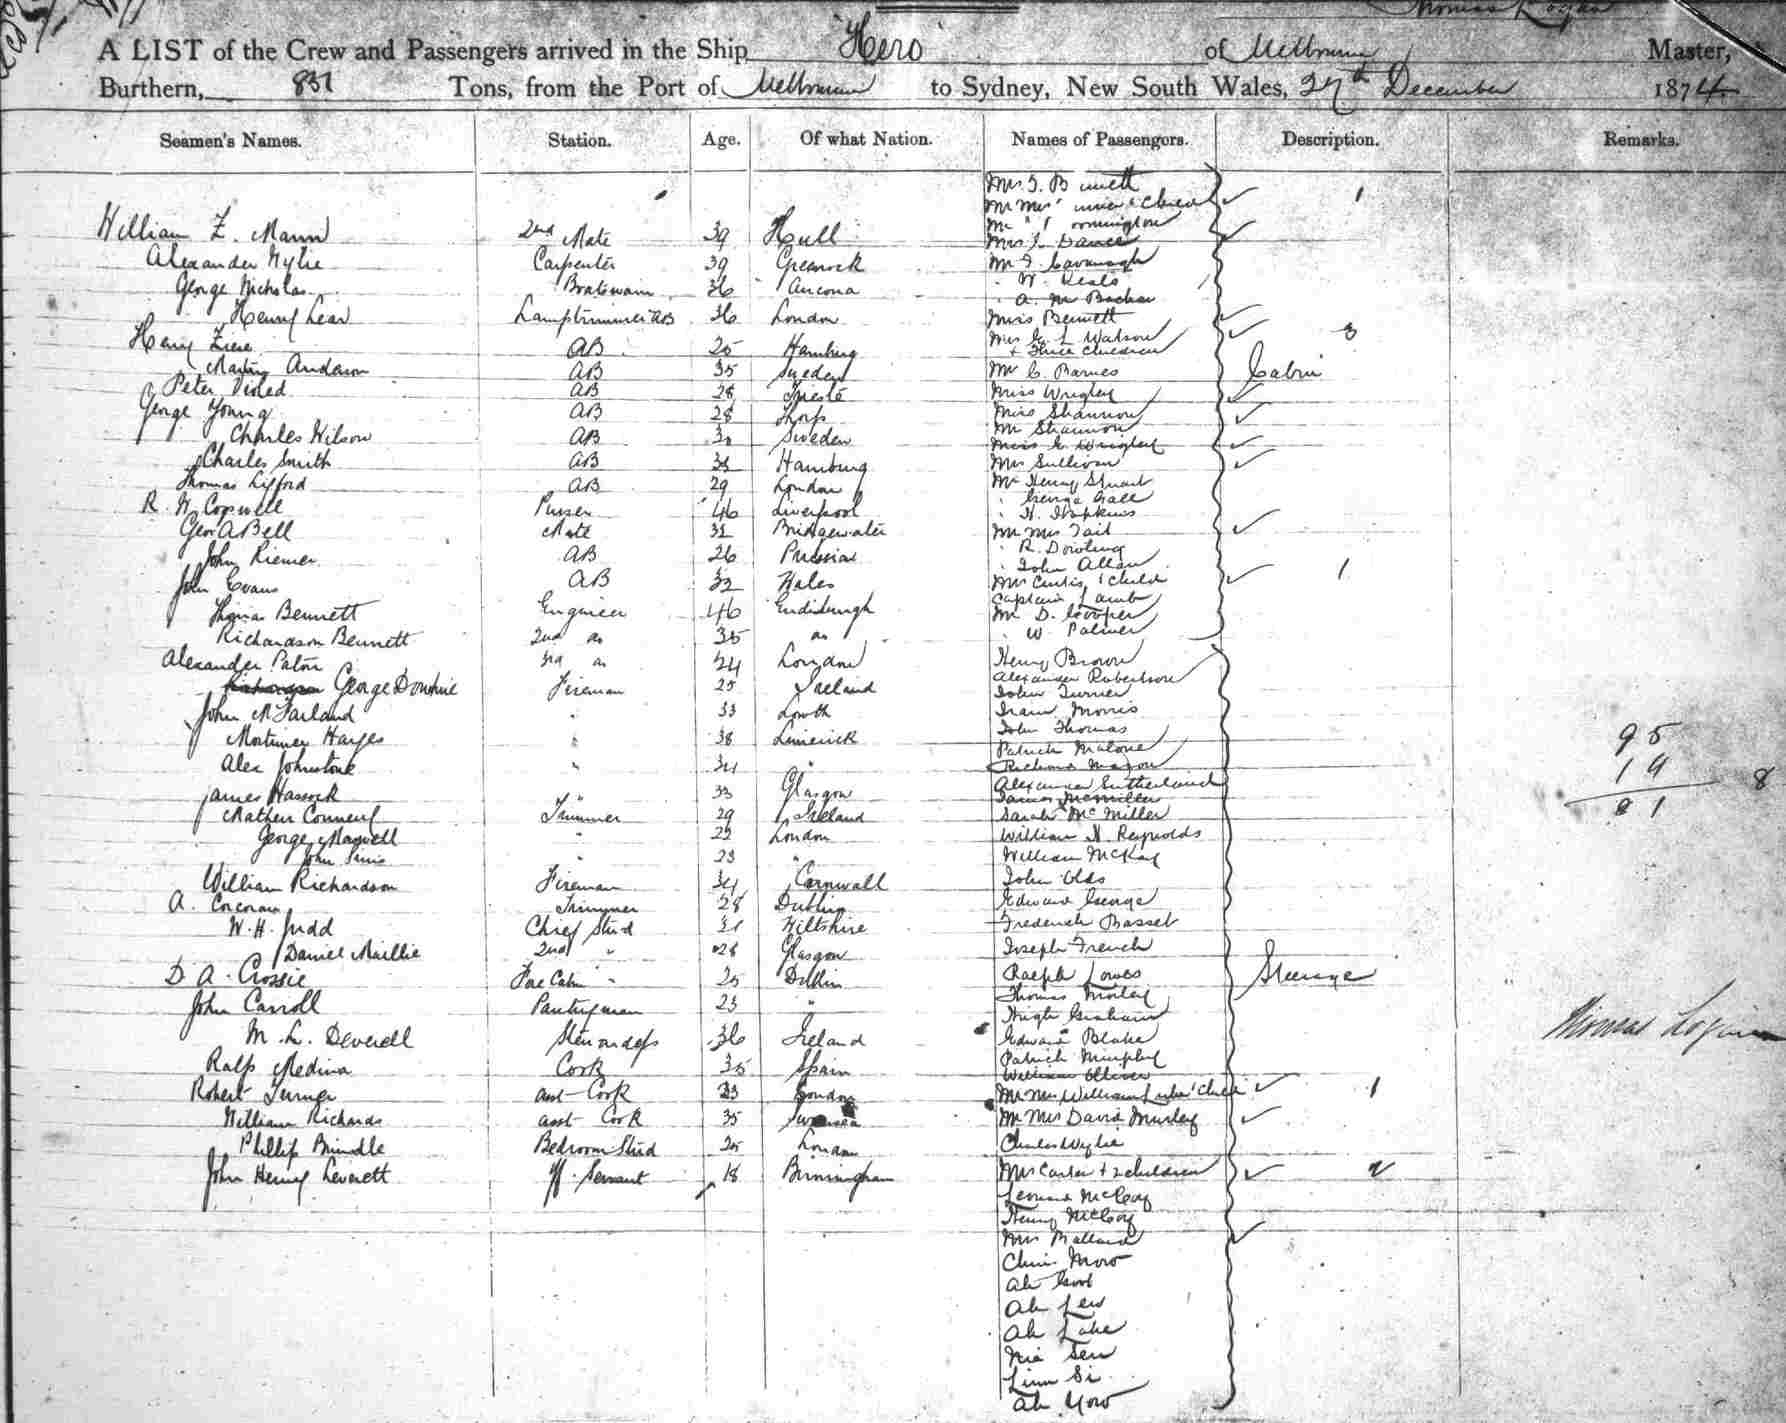 Thomas Logan
A LIST of the Crew and Passengers arrived in the Ship Hero of Melbourne Master,
Burthern, 837 Tons, from the Port of Melbourne to Sydney, New South Wales, 27th December 1874
Seamen's Names. Station. Age. Of what Nation. Names of Passengers. Description. Remarks.
William Z. Mann 2nd Mate 39 Hull
Alexander Wylie Carpenter 39 Greenock
George Nicholas Boatswain 36 Ancona
Henry Lear Lamptrimmer AB 36 London
Henry AB 25 Hamburg
Martin Anderson AB 35 Sweden
Peter AB 28 Trieste
George Young AB 28
Charles Wilson AB Sweden
Charles Smith AB Hamburg
Thomas Lifford AB 29 London
R. W. Copswell Purser 46 Liverpool
Geo A Bell Mate Bridgewater
John Riemer AB 26 Prussia
John Evans AB 32 Wales
Thomas Bennett Engineer 46 Endinburgh
Richardson Bennett 2nd do 35 do
Alexander Paton 3rd do 24 London
George Fireman 25 Ireland
John McFarland " 33 Lowth
Mortimer Hayes " 38 Limerick
Alex Johnstone " 34 "
James Hassock " 33 Glasgow
Mathew Trimmer 29 Ireland
George Maxwell " 22 London
John Sims " 23 "
William Richardson Fireman 34 Cornwall
A. Corcoran Trimmer 28 Dublin
W. H. Judd Chief Stud Wiltshire
Daniel Maillie 2nd " 28 Glasgow
D A. Crossie Fore Cabin " 25 Dublin
John Carroll Pantryman 23 "
M. L. Deverell Stewardess 36 Ireland
Ralf Medina Cook 35 Spain
Robert Turner asst Cook 33 London
William Richards asst Cook 35 Swansea
Phillip Brindle Bedroom Stud 25 London
John Henry Leverett Servant 18 Birmingham
1
Miss Bennett
Mrs G. L Watson
+ Three Children 3
Mr C. Barnes Cabin
Miss Wrigley
Miss Shannon
Mr Shannon
Miss E. Wrigley
Mrs Sullivan
Mr Henry Stuart
" George Gale
" H. Hopkins
Mr Mrs Tait
" R. Dowling
" John Allan
Mrs Curtis 1 Child 1
Captain Lamb
Mr D. Cooper
" W. Palmer
Henry Brown
Alexander Robertson
John Turner
Morris
John Thomas
Patrick Malone
Richard Mason
Alexander Sutherland
James McMiller
Sarah McMiller
William H. Reynolds
William McKay
John Olds
Edward George
Frederick Basset
Joseph French
Ralph Lowes Steerage
Thomas Morley
Hugh Graham
Edward Blake
Patrick Murphy
William Oliver
Mr Mrs William Luke 1 Child 1
Mr Mrs David Murley
Charles Wylie
Mrs Carter + 2 children 2
Leonard McCoy
Henry McCoy
Mrs Mallard
Chin Mow
Ah Goot
Ah Lew
Ah Luke
Nia Sen
Linn Si
Ah Yow
95
14
81
8
Thomas Logan